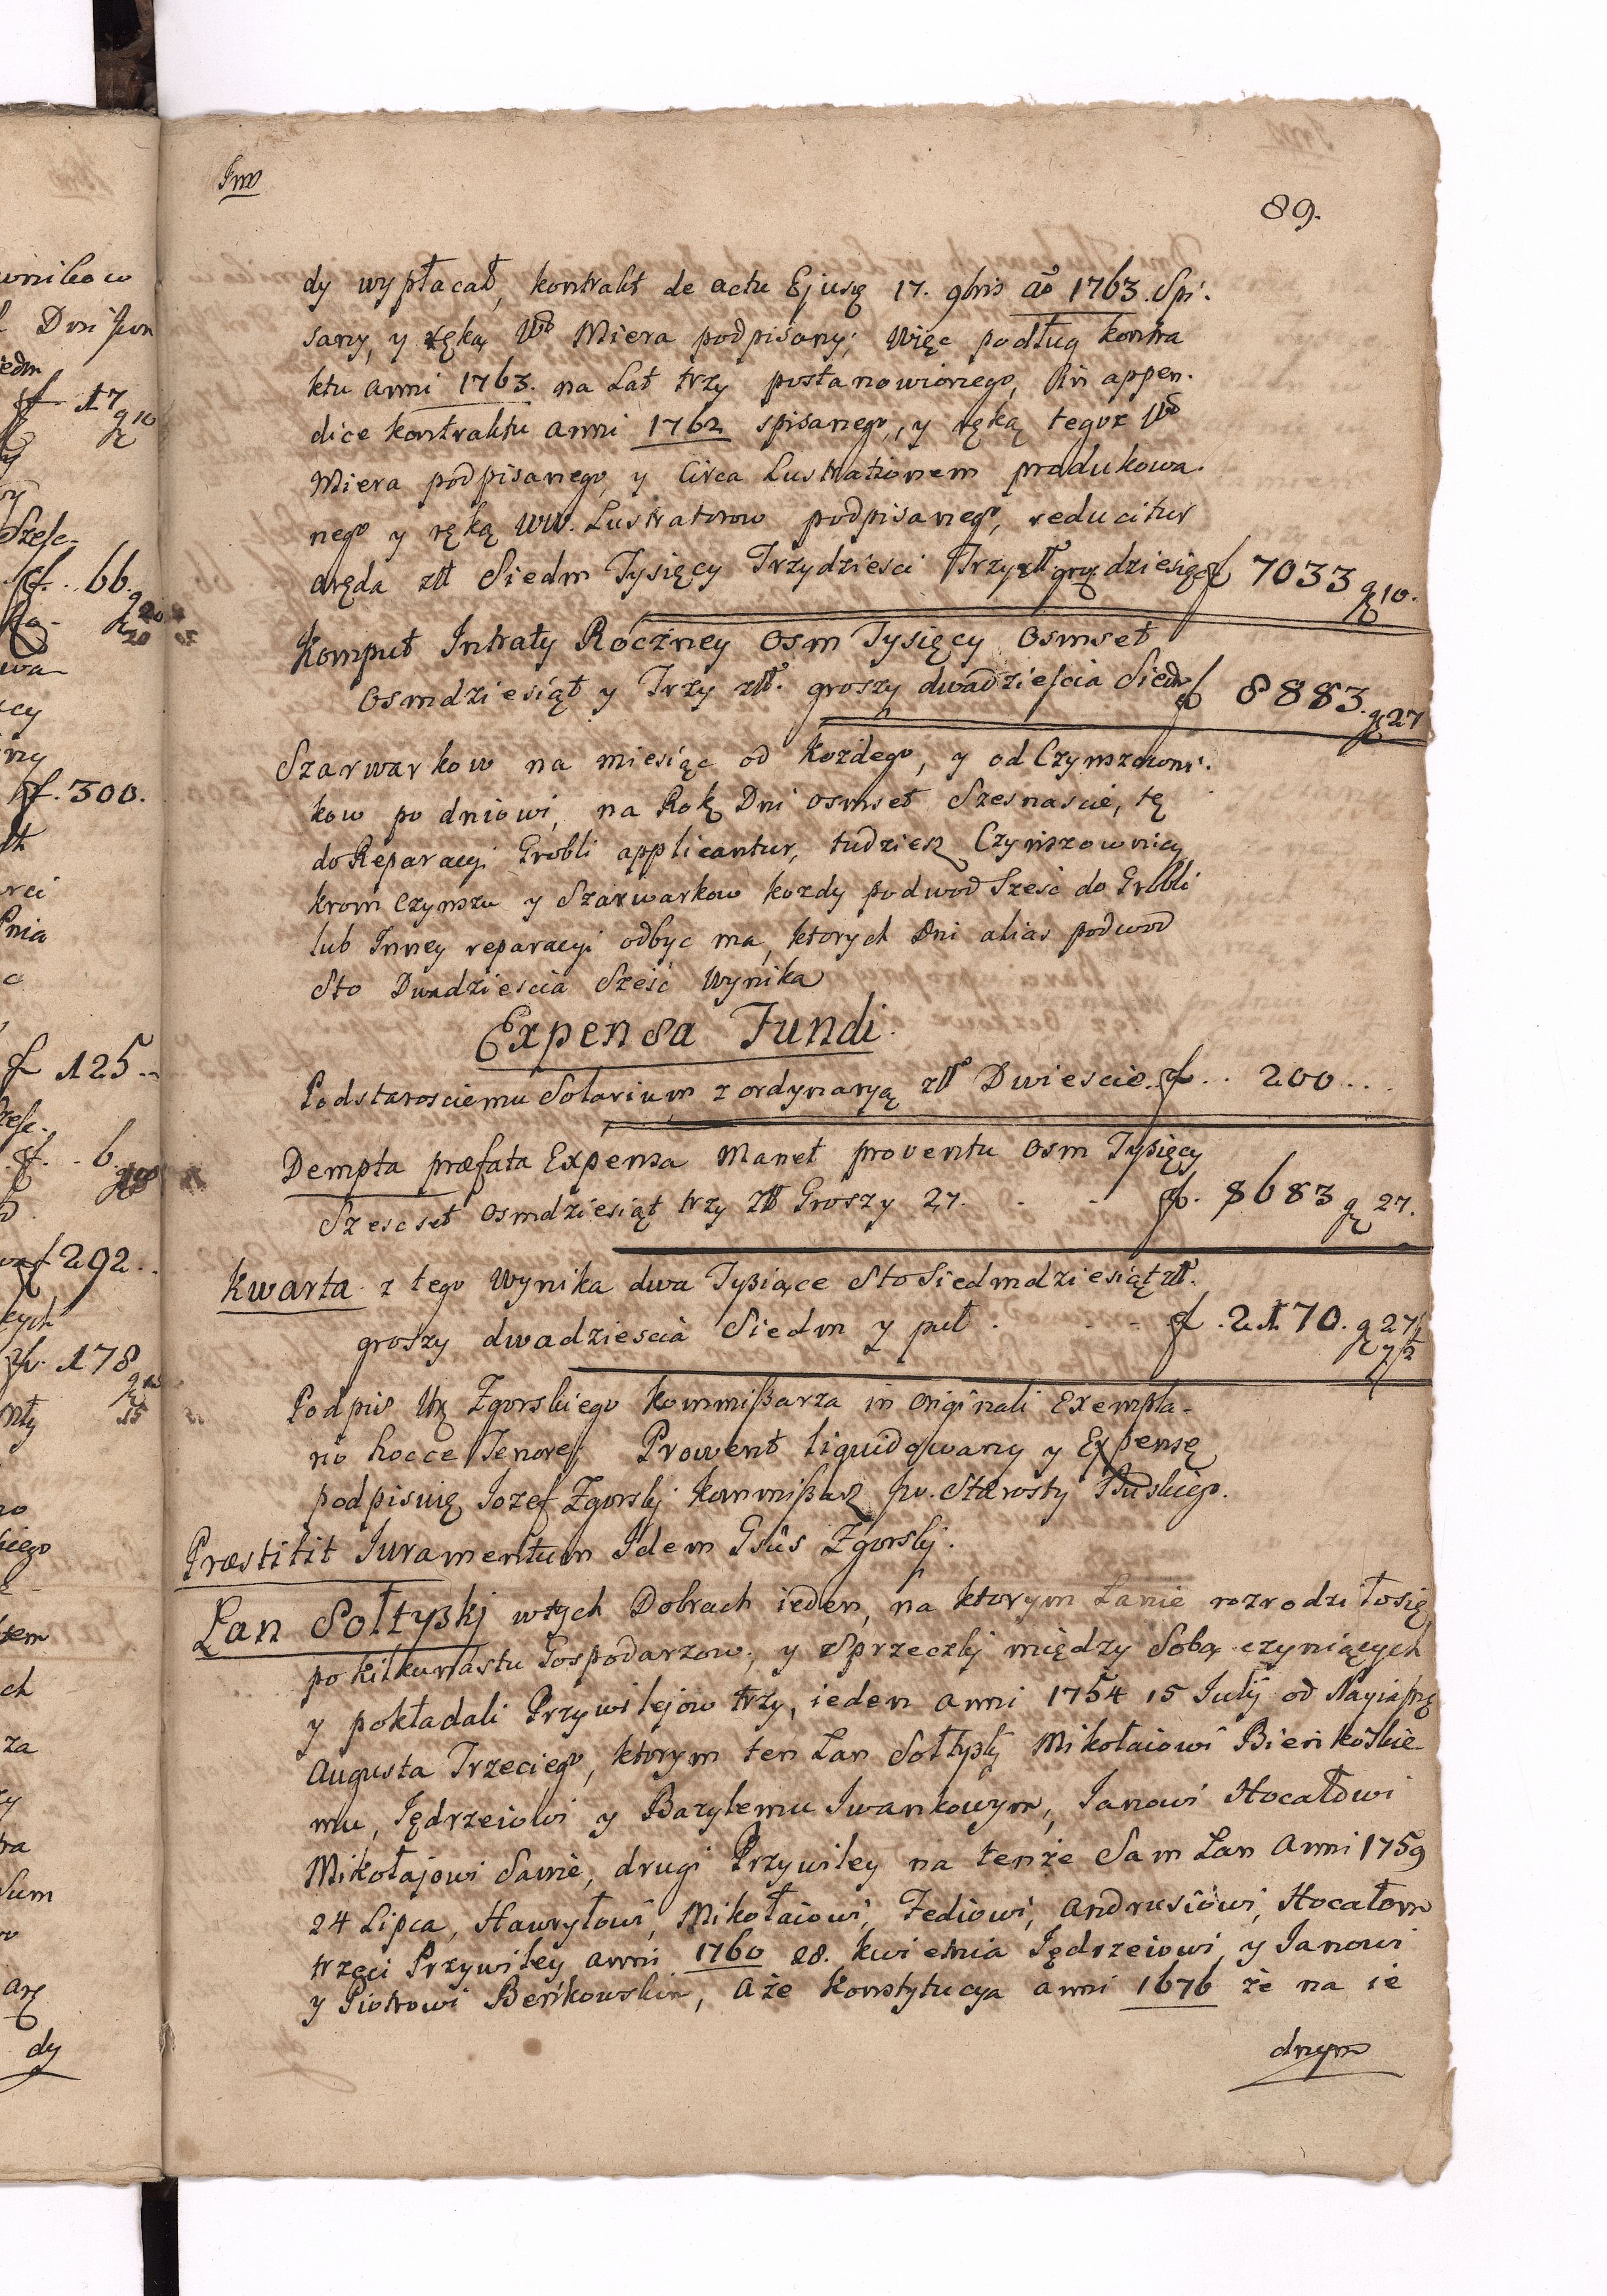 Inv
89.
dy wypłacał, kontrakt de actu Ejusq 17. 9bris ao 1763. Spi.
sany, y ręką Wo Miera podpisany; Więc podług kontra
ktu anni 1763. na Lat trzy postanowionego, & in appen.
dice kontraktu anni 1762 spisanego, y ręką tegoz Wo
Miera podpisanego, y Circa Lustrationem produkowa.
nego y ręką WW. Lustratorow podpisanego, reducitur
aręda złł Siedm Tysięcy Trzydziesci Trzy złł. grzy dziesięć f 7033 g 10.
Komput Intraty Roczney Osm Tysięcy Osmset
Osmdziesiąt y Trzy złł. groszy dwadzieścia Siedm f 8883. g 27
Szarwarkow na miesiąc od Kożdego, y od Czynszowni.
kow po dniowi, na Rok Dni osmset Szesnascie, tę
do Reparacyi Grobli applicantur, tudziesz Czynszownicy
krom Czynszu y Szarwarkow kozdy podwod Sześć do Grobli
lub Inney reparacyi odbyc ma, ktorych Dni alias podwod
Sto Dwadziescia Sześć Wynika
Expensa Fundi.
Podstarosciemu Solarium z ordynaryą złł Dwiescie. f .. 200 ...
Dempta præfata Expensa Manet proventu Osm Tysięcy
Szescset Osmdziesiąt trzy złł Groszy 27. . . f. 8683 g 27.
Kwarta z tego Wynika dwa Tysiące Sto Siedmdziesiąt złł.
groszy dwadziescia Siedm y puł . . . f . 2170. g 27 y ½
Podpis Ur Zgorskiego Kommissarza in Originali Exempla-
rio hocce Tenore; Prowent liquidowany y Expensę
podpisuię Iozef Zgorskj Kommissarz Jw. Starosty Buskiego.
Præstitit Iuramentum Idem Gsus Zgorskj.
Łan Sołtyskj w tych Dobrach ieden, na ktorym Łanie rozrodziło się
po kilkunastu Gospodarzow, y Sprzeczki między Sobą czyniących
y pokładali Przywilejow trzy, ieden anni 1754 15 Iulij od Nayiasnę
Augusta Trzeciego, ktorym ten Łan Sołtyskj Mikołaiowi Bieńkoskie-
mu, Jędrzeiowi y Bazylemu Iwankowym, Ianowi Hocałowi
Mikołajowi Sawie, drugi Przywiley na tenże Sam Łan Anni 1759
24 Lipca, Hawryłowi, Mikołaiowi, Fediowi, Andrusiowi, Hocałom
trzeci Przywiley anni 1760 28. kwietnia Jędrzeiowi, y Ianowi
y Piotrowi Beńkowskim, A że Konstytucya anni 1676 że na ie
dnym
wnikow
f 17 g 10
Szesc-
f. .. 66. g 20
20
f. 300.
f 125 ..
f. . 6.
f 292 ..
f. 178 g
15
dy